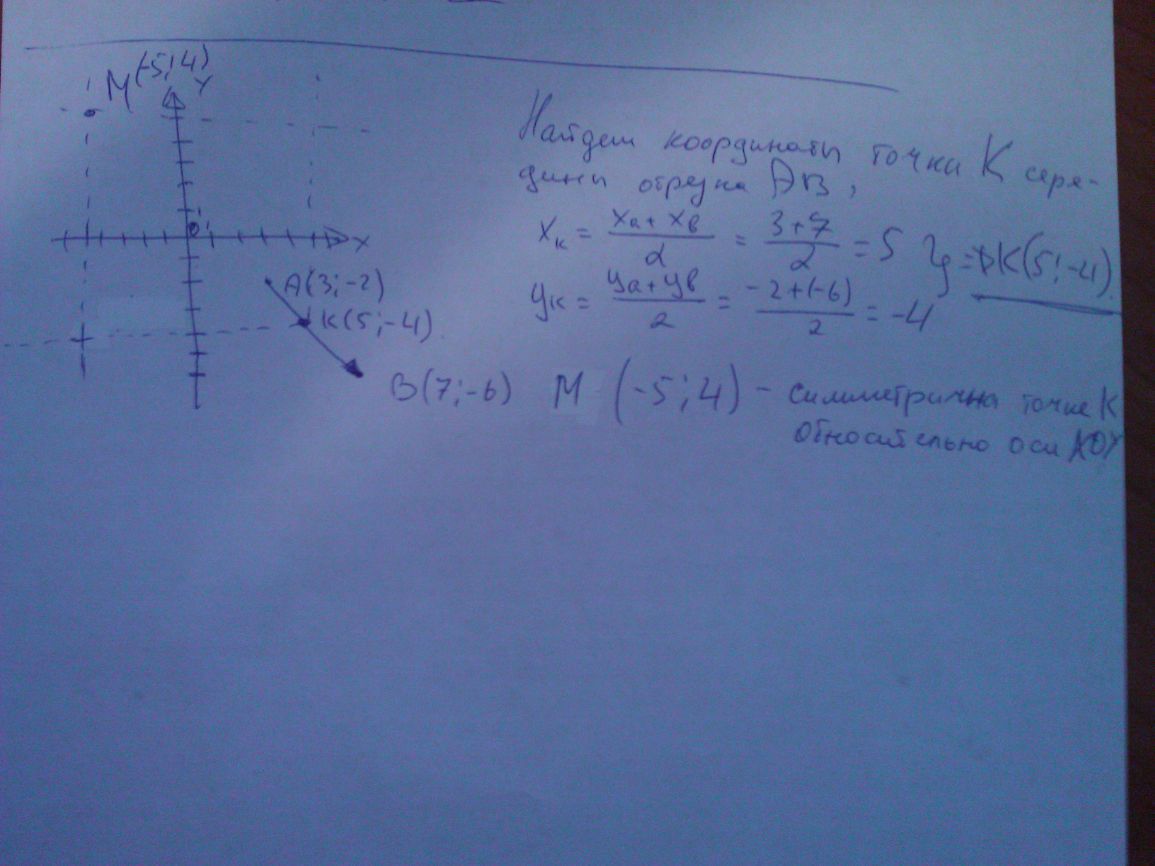 M(-5;4)
Y
1
0
1
X
A(3;-2)
K(5;-4)
B(7;-6)
Найдем координаты точки K сере-
дины отрезка AB,
xк = (xa + xв)/2 = (3+7)/2 = 5
yк = (ya + yв)/2 = (-2+(-6))/2 = -4
K(5;-4).
M (-5;4) - симметрична точке K
относительно оси XOY